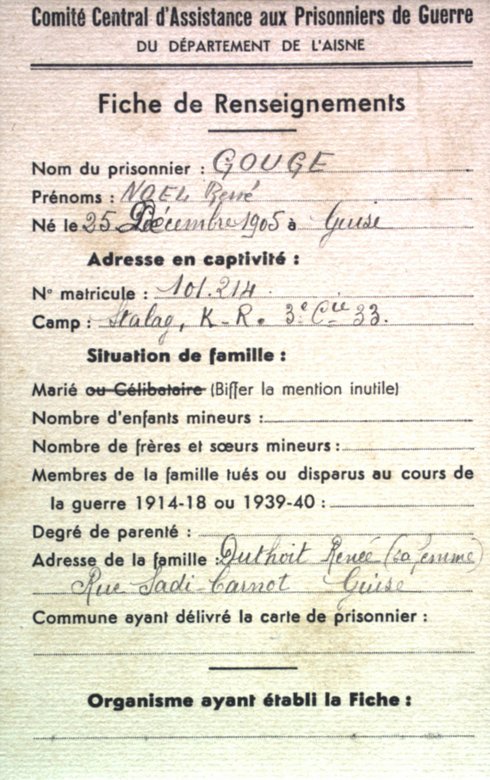 Comité Central d'Assistance aux Prisonniers de Guerre
DU DÉPARTEMENT DE L'AISNE
Fiche de Renseignements
Nom du prisonnier : GOUGE
Prénoms : NOEL René
Né le 25 Décembre 1905 à Guise
Adresse en captivité :
N° matricule : 101.214.
Camp : Stalag, K-R. 3e Cie 33.
Situation de famille :
Marié ou Célibataire (Biffer la mention inutile)
Nombre d'enfants mineurs :
Nombre de frères et sœurs mineurs :
Membres de la famille tués ou disparus au cours de
la guerre 1914-18 ou 1939-40 :
Degré de parenté :
Adresse de la famille : Duthoit Renée (sa femme)
Rue Sadi-Carnot Guise
Commune ayant délivré la carte de prisonnier :
Organisme ayant établi la Fiche :